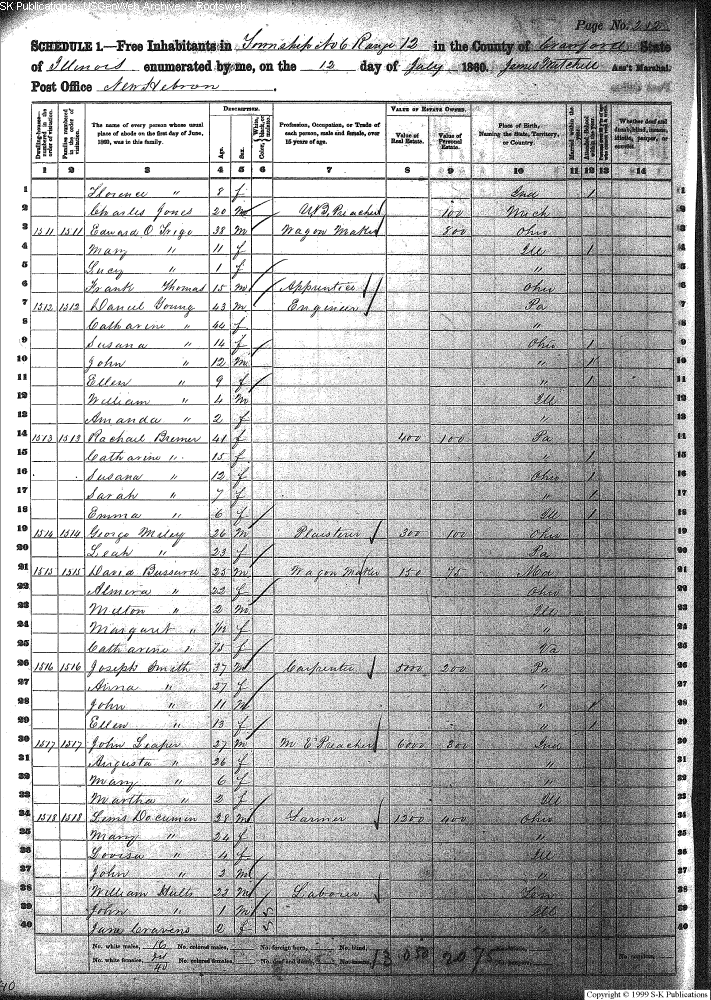 SK Publications - USGenWeb Archives - Rootsweb
Page No. 212
SCHEDULE 1.—Free Inhabitants in Township No 6 Range 12 in the County of Crawford State
of Illinois enumerated by me, on the 12 day of July 1860. James Mitchell Ass't Marshal.
Post Office New Hebron
Dwelling-houses—numbered in the order of visitation. Families numbered in the order of visitation. The name of every person whose usual place of abode on the first day of June, 1860, was in this family. DESCRIPTION. Age. Sex. Color, White, black, or mulatto. Profession, Occupation, or Trade of each person, male and female, over 15 years of age. VALUE OF ESTATE OWNED. Value of Real Estate. Value of Personal Estate. Place of Birth, Naming the State, Territory, or Country. Married within the year. Attended School within the year. Whether deaf and dumb, blind, insane, idiotic, pauper, or convict.
1 2 3 4 5 6 7 8 9 10 11 12 13 14
1 Florence " 8 f Ind 1 1
2 Charles Jones 20 m Preacher 100 Mich 2
3 1511 1511 Edward O Trigo 38 m Wagon Maker 800 Ohio 3
4 Mary " 11 f Ill 1 4
5 Lucy " 1 f " 5
6 Frank Thomas 15 m Apprentice Ohio 6
7 1512 1512 Daniel Young 43 m Engineer Pa 7
8 Catharine " 44 f " 8
9 Susana " 14 f Ohio 1 9
10 John " 12 m " 1 10
11 Ellen " 9 f " 1 11
12 William " 4 m Ill 12
13 Amanda " 2 f 13
14 1513 1513 Rachael Bremer 41 f 400 100 Pa 14
15 Catharine " 15 f 1 15
16 Susana " 12 f Ohio 1 16
17 Sarah " 7 f " 1 17
18 Emma " 6 f Ill 1 18
19 1514 1514 George Meley 26 m Plaisterer 300 100 Ohio 19
20 Leah " 23 f Pa 20
21 1515 1515 David Bussard 25 m Wagon Maker 150 75 Md 21
22 Almira " 22 f Ohio 22
23 Melton " 2 m Ill 23
24 Margaret " f " 24
25 Catharine " 75 f Va 25
26 1516 1516 Joseph Smith 37 m Carpenter 5000 200 Pa 26
27 Anna " 27 f " 27
28 John " 11 m " 1 28
29 Ellen " 13 f 1 29
30 1517 1517 John Leaper 27 m M E Preacher 6000 300 Ind 30
31 Augusta " 26 f " 31
32 Mary " 6 f 32
33 Martha " 2 f Ill 33
34 1518 1518 Documin 28 m Farmer 1200 400 Ohio 34
35 Mary " 24 f 35
36 Lovisa " 4 f Ill 36
37 John " 2 m " 37
38 William Hults 23 m Laborer 38
39 John " 1 m Ill 39
40 Jane Cravens 2 f " 40
No. white males, 16 No. colored males, No. foreign born, No. blind,
No. white females, 24 No. colored females, No. deaf and dumb, 13 050 2075
40
Copyright © 1999 S-K Publications